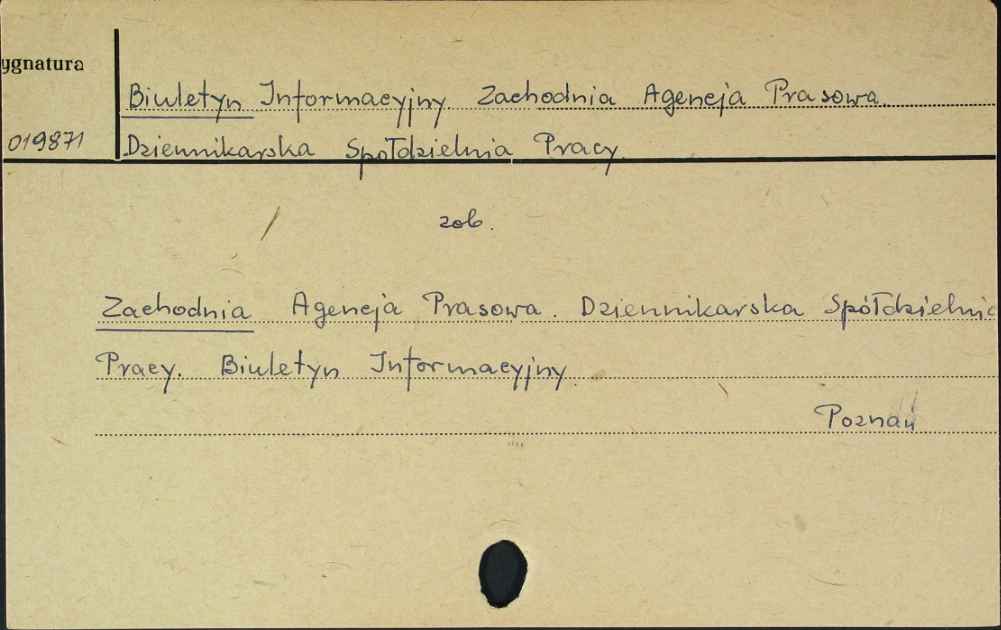 ygnatura
Biuletyn Informacyjny. Zachodnia Agencja Prasowa.
019871
Dziennikarska Społdzielnia Pracy.
zob.
Zachodnia Agencja Prasowa. Dziennikarska Spółdzielnia
Pracy. Biuletyn Informacyjny.
Poznań